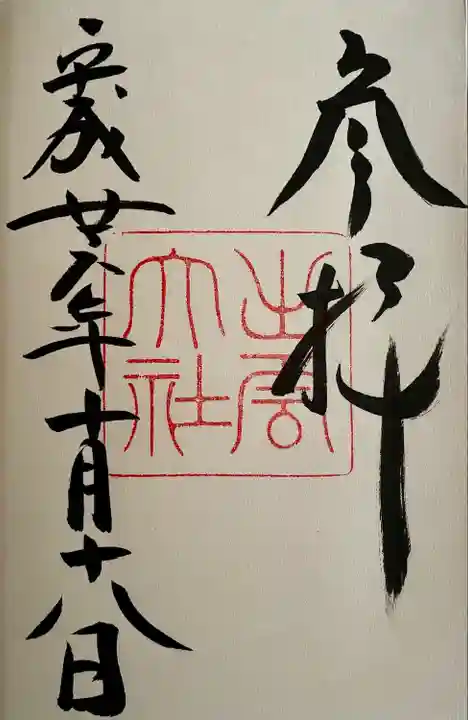 参拝
出雲
大社
平成廿六年十月十八日